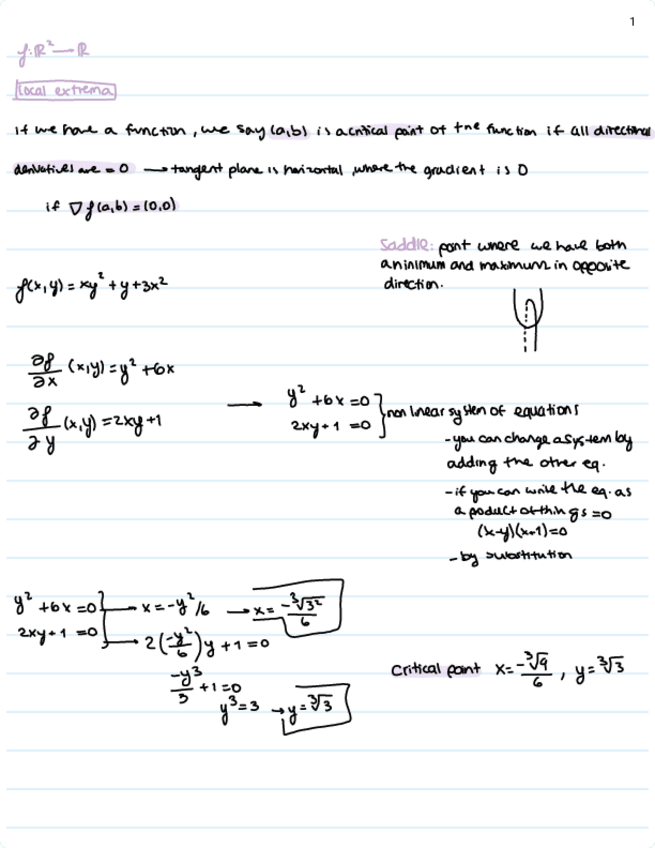 1
f: ℝ² → ℝ
local extrema
if we have a function, we say (a,b) is a critical point of the function if all directional
derivatives are = 0 → tangent plane is horizontal, where the gradient is 0
if ∇f(a,b) = (0,0)
Saddle: point where we have both
a minimum and maximum in opposite
direction.
f(x,y) = xy² + y + 3x²
∂f/∂x (x,y) = y² + 6x
∂f/∂y (x,y) = 2xy + 1
→ y² + 6x = 0
2xy + 1 = 0
non linear system of equations
- you can change a system by
adding the other eq.
- if you can write the eq. as
a product of things = 0
(x-y)(x+1) = 0
- by substitution
y² + 6x = 0 → x = -y²/6 → x = -∛3²/6
2xy + 1 = 0 → 2(-y²/6)y + 1 = 0
-y³/3 + 1 = 0
y³ = 3 → y = ∛3
Critical point x = -∛9/6 , y = ∛3